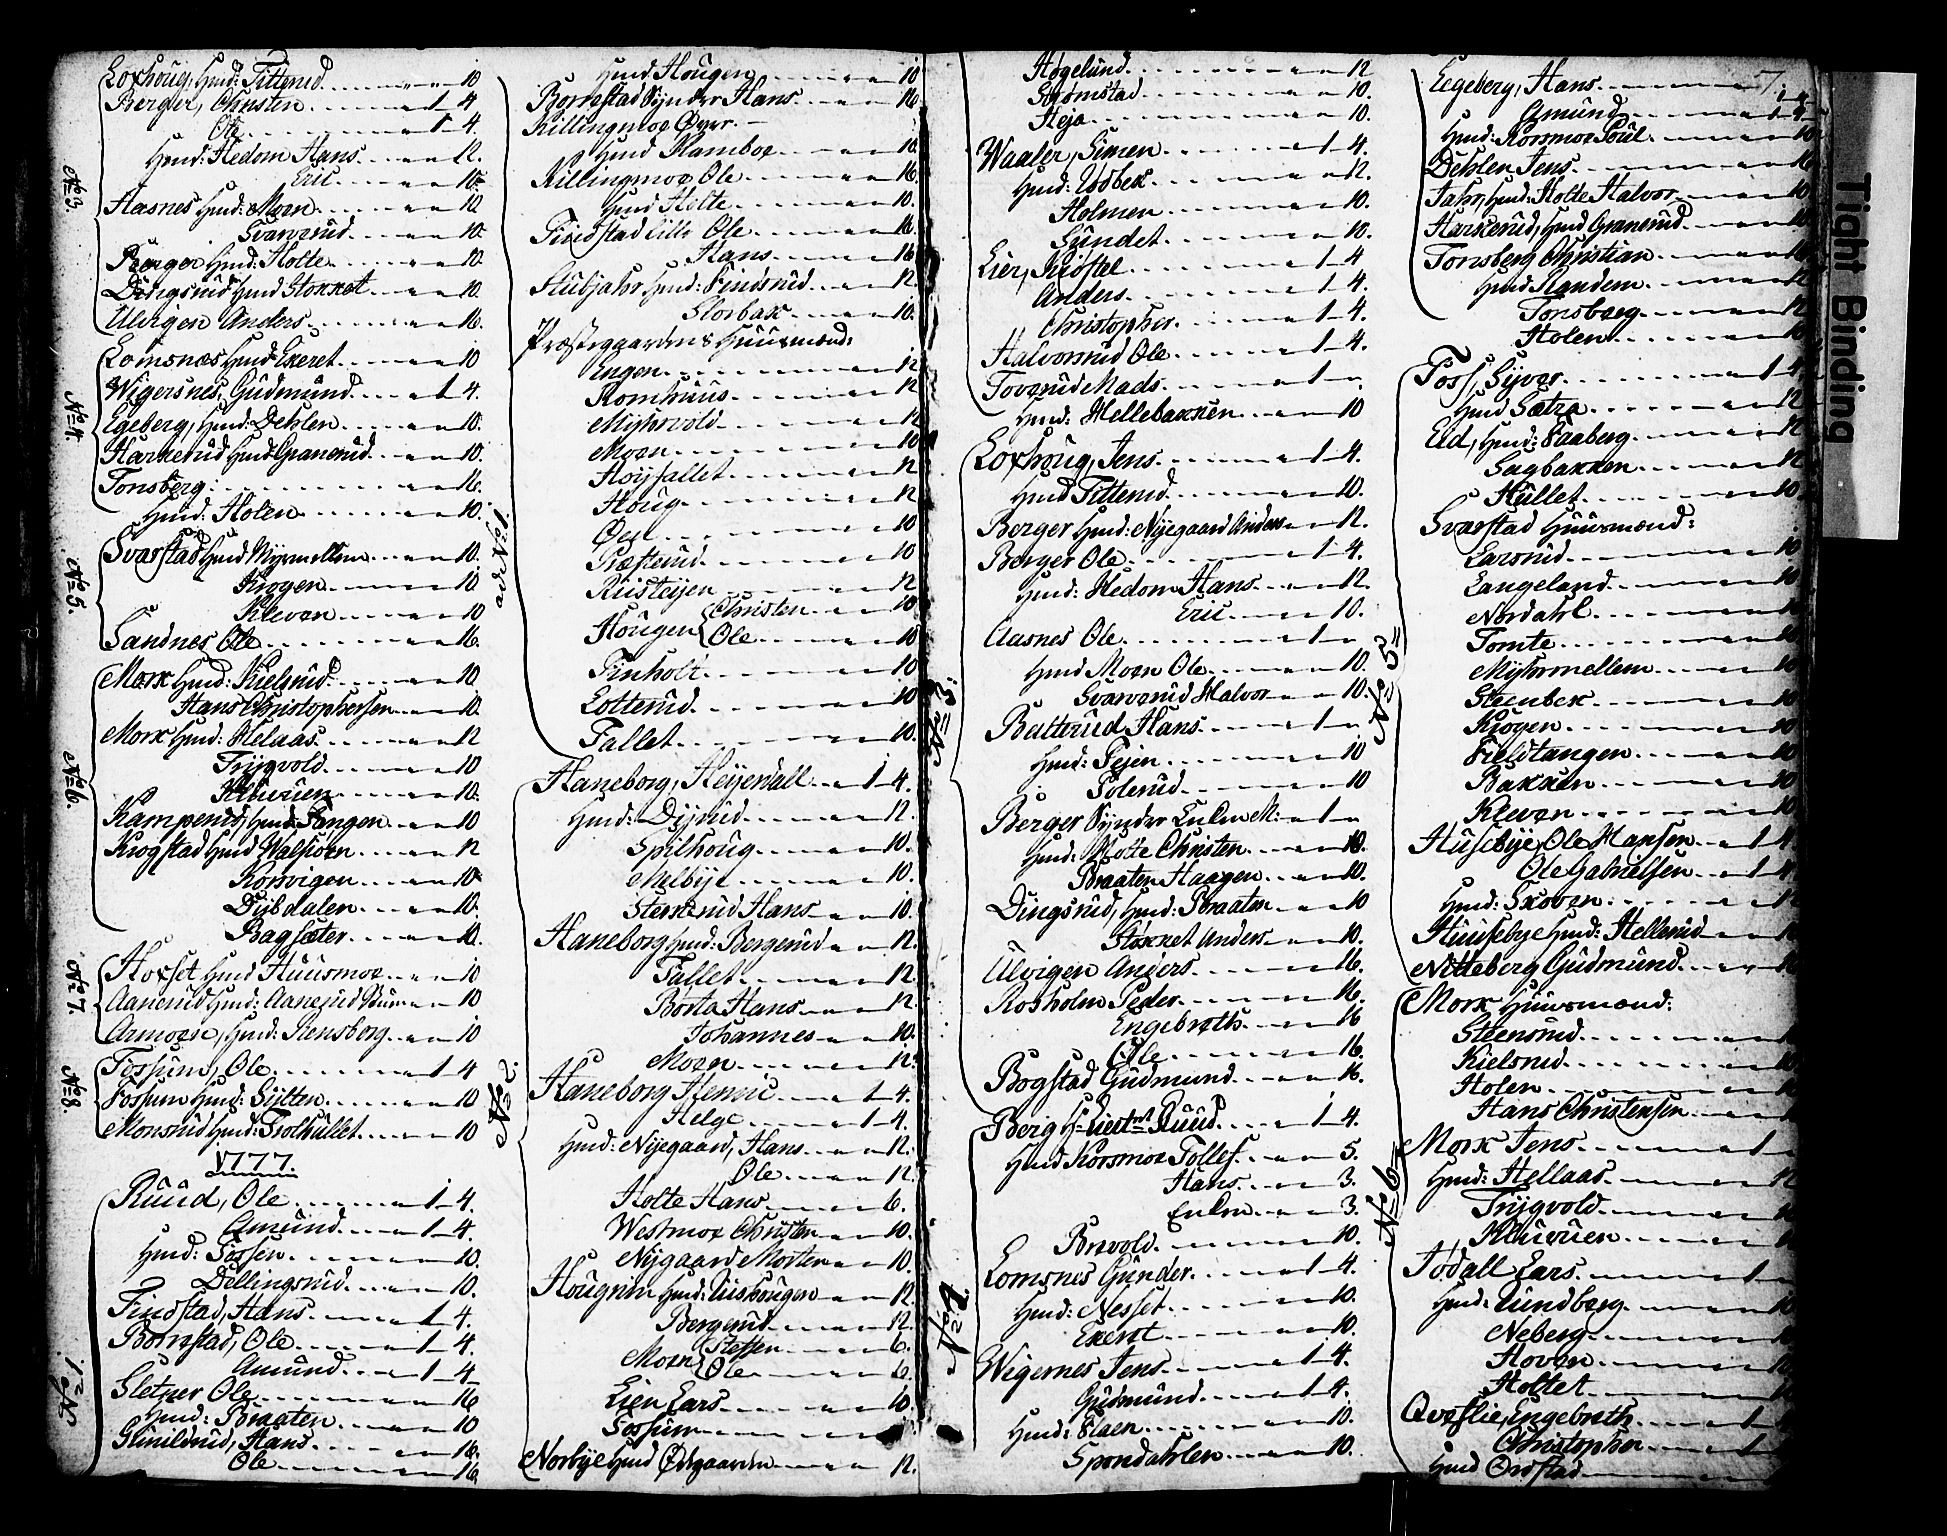 Loxhoug, Hmd: Titterud 10
Berger, Christen 1-4
Ole 1-4.
Hmd: Hedom Hans 12.
Eric 10
No 3.
Aasnes Hmd: Moen 10
Svarverud 10
Berger Hmd: Holte 10
Dingsrud Hmd Stokket 10.
Ulvigen Anders 16.
Lomsnæs Hmd: Exeret 10
Wigersnes, Gudmund 1-4.
No 4.
Egeberg, Hmd: Dehlen 10.
Harkerud Hmd Granerud 10.
Tonsberg: 16.
Hmd: Holen 10.
Svarstad Hmd Myrmellem 10.
Krogen 10
No 5.
Kleven 10
Sandnes Ole 16.
Mork Hmd: Kielsrud 10
Hans Christophersen 10.
Mork Hmd: Helaas 12
Trygvold 10
No 6.
Kluvuen 10.
Kamperud, Hmd: Tangen 10
Krogstad Hmd Walsiøen 12
Korsvigen 10
Dybdalen 10.
Bagsæter 10.
Hoxset Hmd Huusmoe 10
No 7.
Aanerud Hmd: Aanerud 10
Armoese, Hmd: Rensberg 10
Fossum, Ole 1-4
No 8.
Fossum Hmd: Sytten 10
Monsrud Hmd: Trolhullet 10
1777.
Ruud, Ole 1-4.
Amund 1-4.
Hmd: Fossen 10.
Dellingsrud 10.
Trudstad, Hans 1-4.
Bornestad, Ole 1-4.
Amund 1-4
Sletner Ole 16
Hmd: Braaten 10
Gunildrud, Hans 16.
Ole 16
Hmd Hougen 10
Bornestad Synder Hans 16.
Killingmoe Øvre.
Hmd Hamboe 10
Killingmoe Ole 16.
Hmd Holte 10.
Trudstad Lille Ole 16
Hans 16
Stubjahr Hmd: Findsrud 12
Slorbak 10.
Præstegaardens Huusmænd:
Engen 12
Romhuus 12
Myhrvold 12
Moen 10
Høyfallet 12
Houg 12
Øen 10
Præsterud 10
Riisteyen 12
Hougen Christen 10
Ole 10
Finholt 10
Lotterud 10
Fallet 10.
Haneborg, Heyerdall 1-4.
Hmd: Dysrud 12.
Spilhoug 10.
Melbye 10.
Stersrud Hans 10.
Haneborg Hmd: Bergerud 12.
Fallet 12
Borta Hans 12
Johannes 10
Moen 12
No 2.
Haneborg Henric 1-4.
Helge 1-4.
Hmd: Nyegaard, Hans 12.
Ole 12
Holte Hans 6.
Westmoe Christen 10.
Nygaard Morten 10.
Hougnem Hmd: Liishougen 12.
Bergerud 12
Moen Steffen 6.
Ole 6
Lien Lars 10
Fossum
Norbye Hmd Ødegaarden 12.
Høgelund 12
Strømstad 10.
Heja 10.
Waaler, Simen 1-4.
Hmd: Udbek 12.
Holmen 10.
Sundet 10.
Lier, Kiøstel 1-4
Anders 1-4.
Christopher 1-4.
Halvorsrud Ole 1-4.
Toverud Mads 1
Hmd: Hellebakken 10
Loxhoug, Jens 1-4.
Hmd Titterud 10.
Berger Hmd: Nyegaard Anders 12.
Berger Ole 1-4.
Hmd: Hedom Hans 12
Eric 10.
Aasnes Ole 1
Hmd Moen Ole 10.
Svarverud Halvor 10
No 3.
Butterud Hans 1
Hmd: Pejen 10
Polerud 10
Berger Synder Enken M: 1
Hmd: Holte Christen 10.
Braaten Haagen 10.
Dingsrud, Hmd: Braaten 10
Stokket Anders 10.
Ulvigen Anders 16.
Rosholm Peder 16.
Engebreth 16
Ole 16.
Bogstad Gudmund 16.
Berg Hr Lieutnt Ruud 1-4.
Hmd Korsmoe Tollef 5.
Hans 3.
Enken 3.
Brevold 10.
No 4
Lomsnes Gunder 1-4.
Hmd: Nesset 10.
Exeret 10.
Wigernes Jens 1-4.
Gudmund 1-4.
Hmd: Flaen 10.
Spondahlen 10.
7.
Eegeberg, Hans 1-4
Amund 1-4
Hmd: Korsmoe Poul 10
Dehlen Jens 16
Jahr, Hmd: Holte Halvor 10
Harkerud, Hmd Granerud 10
Tonsberg Christian 16
Hmd Randem 12
Tonsberg 12
Holen 10
Foss, Syver 1-4
Hmd Sætra 12
Eid, Hmd: Faaberg 12
Sagbakken 12
Hullet 10
Svarstad Huusmænd:
Larsrud 10
Langeland 10
Nordahl 10
Tomte 10
No 5
Myhrmellem 10
Steenbek 10
Krogen 10
Fieldtangen 10
Bakken 10
Kleven 10
Husebye, Ole Hansen 1-4
Ole Gabrielsen 1-4
Hmd: Skoven
Huusebye Hmd: Hellerud
Nitteberg Gudmund
Mork Huusmænd:
Steensrud
Kielsrud
Holen
Hans Christensen
Mork Jens 1
No 6
Hmd: Hellaas 12
Trygvold
Kluvuen
Tødall Lars 1
Hmd: Lundberg
Neberg
Hoven
Holtet
Qveslie, Engebreth 1
Christopher 1
Hmd Ordstad
Tight Binding